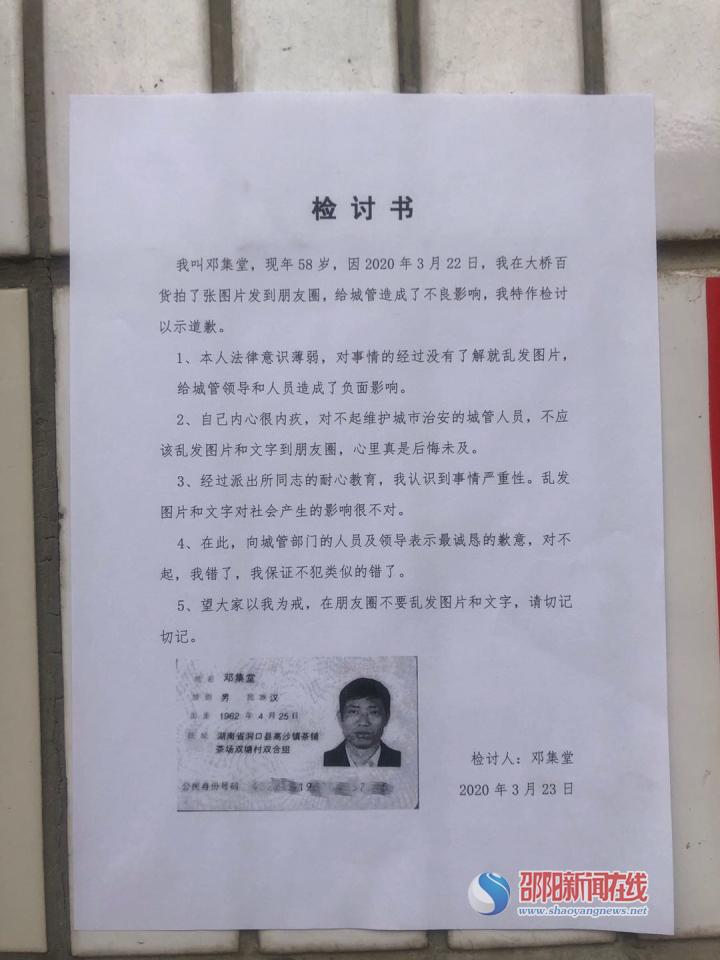 检讨书
我叫邓集堂，现年58岁，因2020年3月22日，我在大桥百
货拍了张图片发到朋友圈，给城管造成了不良影响，我特作检讨
以示道歉。
1、本人法律意识薄弱，对事情的经过没有了解就乱发图片，
给城管领导和人员造成了负面影响。
2、自己内心很内疚，对不起维护城市治安的城管人员，不应
该乱发图片和文字到朋友圈，心里真是后悔未及。
3、经过派出所同志的耐心教育，我认识到事情严重性。乱发
图片和文字对社会产生的影响很不对。
4、在此，向城管部门的人员及领导表示最诚恳的歉意，对不
起，我错了，我保证不犯类似的错了。
5、望大家以我为戒，在朋友圈不要乱发图片和文字，请切记
切记。
姓名 邓集堂
性别 男 民族 汉
出生 1962年4月25日
住址 湖南省洞口县高沙镇茶铺
茶场双塘村双合组
公民身份号码
检讨人：邓集堂
2020年3月23日
邵阳新闻在线
www.shaoyangnews.net